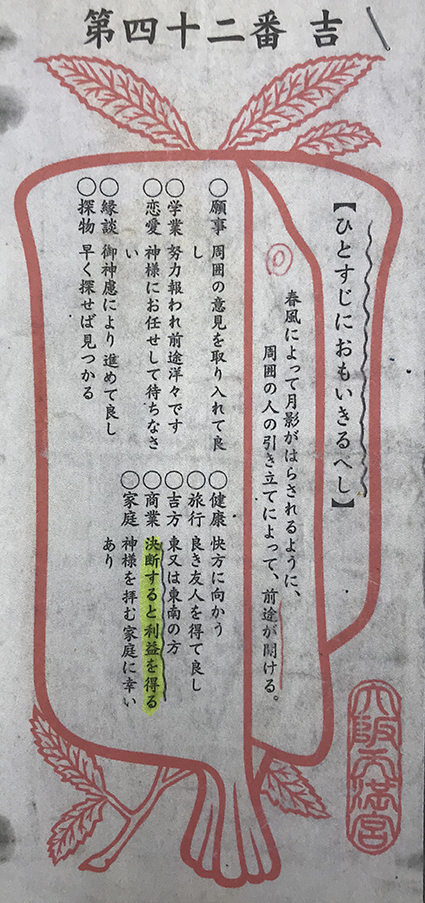 第四十二番 吉
【ひとすじにおもいきるべし】
春風によって月影がはらされるように、
周囲の人の引き立てによって、前途が開ける。
○願事 周囲の意見を取り入れて良
し
○学業 努力報われ前途洋々です
○恋愛 神様にお任せして待ちなさ
い
○縁談 御神慮により進めて良し
○探物 早く探せば見つかる
○健康 快方に向かう
○旅行 良き友人を得て良し
○吉方 東又は東南の方
○商業 決断すると利益を得る
○家庭 神様を拝む家庭に幸い
あり
大阪天満宮